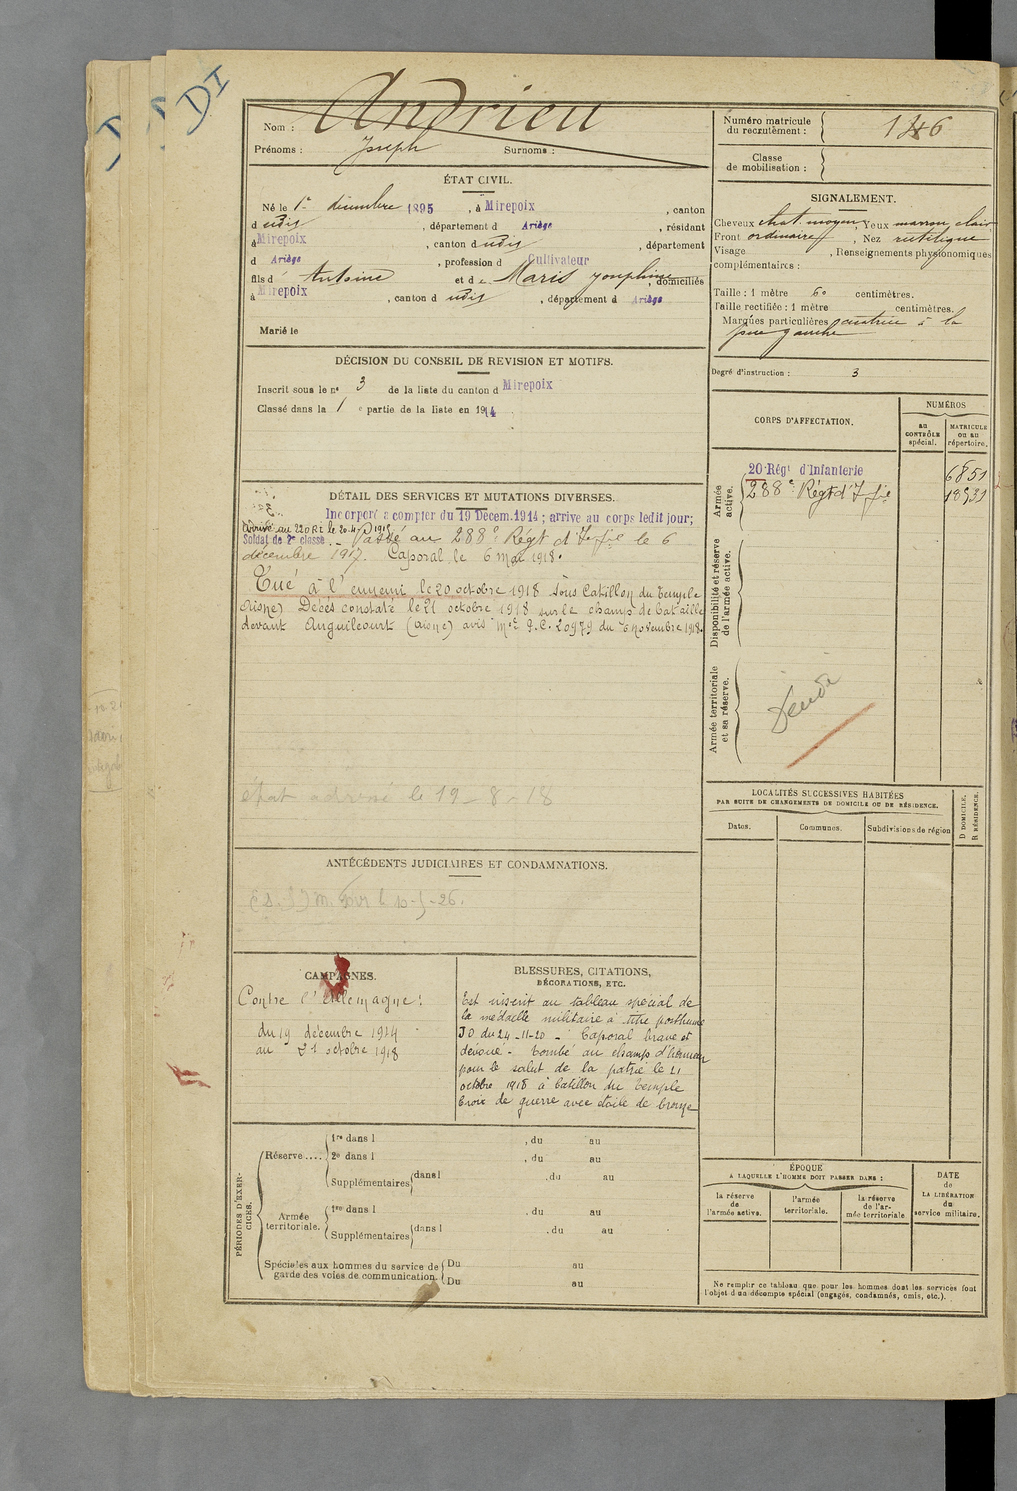 DI
Nom : Andrieu
Prénoms : Joseph Surnoms :
Numéro matricule
du recrutement : 146
Classe
de mobilisation :
ÉTAT CIVIL.
Né le 1er décembre 1895, à Mirepoix, canton
dudis, département d Ariège, résidant
à Mirepoix, canton dudis, département
d Ariège, profession d Cultivateur
fils d' Antoine et de Maris Joséphine, domiciliés
à Mirepoix, canton d udis, département d Ariège
Marié le
SIGNALEMENT.
Cheveux chat. moyen, Yeux marron clair
Front ordinaire, Nez rectiligne
Visage , Renseignements physionomiques
complémentaires :
Taille : 1 mètre 60 centimètres.
Taille rectifiée : 1 mètre centimètres.
Marques particulières cicatrice à la
joue gauche
Degré d'instruction : 3
DÉCISION DU CONSEIL DE REVISION ET MOTIFS.
Inscrit sous le nº 3 de la liste du canton d Mirepoix
Classé dans la 1 e partie de la liste en 1914
CORPS D'AFFECTATION.
NUMÉROS
au
CONTRÔLE
spécial.
MATRICULE
ou au
répertoire.
Armée
active.
20 Régt d'Infanterie 6851
288e Régt d'Ifie 18931
Disponibilité et réserve
de l'armée active.
Armée territoriale
et sa réserve.
DÉTAIL DES SERVICES ET MUTATIONS DIVERSES.
Incorporé à compter du 19 Décem.1914 ; arrive au corps ledit jour;
Arrivé au 220 RI le 20.4.1915
Soldat de 2e classe. Passé au 288e Régt d'Infie le 6
décembre 1917. Caporal le 6 mai 1918.
Tué à l'ennemi le 20 octobre 1918 sous Catillon du Temple
(Aisne) Décès constaté le 21 octobre 1918 sur le champ de bataille
devant Anguilcourt (Aisne) avis Mel G.C. 20979 du 6 Novembre 1918.
état adressé le 19-8-18
ANTÉCÉDENTS JUDICIAIRES ET CONDAMNATIONS.
LOCALITÉS SUCCESSIVES HABITÉES
PAR SUITE DE CHANGEMENTS DE DOMICILE OU DE RÉSIDENCE.
Dates. Communes. Subdivisions de région
D DOMICILE.
R RÉSIDENCE.
CAMPAGNES.
Contre l'Allemagne :
du 19 décembre 1914
au 21 octobre 1918
BLESSURES, CITATIONS,
DÉCORATIONS, ETC.
Est inscrit au tableau spécial de
la médaille militaire à titre posthume
JO du 24-11-20 - Caporal brave et
dévoué - Tombé au champ d'honneur
pour le salut de la patrie le 21
octobre 1918 à Catillon du Temple
Croix de guerre avec étoile de bronze
PÉRIODES D'EXER-
CICES.
Réserve....
1re dans l , du au
2e dans l , du au
Supplémentaires dans l , du au
Armée
territoriale.
1re dans l , du au
Supplémentaires dans l , du au
Spéciales aux hommes du service de
garde des voies de communication.
Du au
Du au
ÉPOQUE
A LAQUELLE L'HOMME DOIT PASSER DANS :
la réserve
de
l'armée active.
l'armée
territoriale.
la réserve
de l'ar-
mée territoriale
DATE
de
LA LIBÉRATION
du
service militaire.
Ne remplir ce tableau que pour les hommes dont les services font
l'objet d'un décompte spécial (engagés, condamnés, omis, etc.).